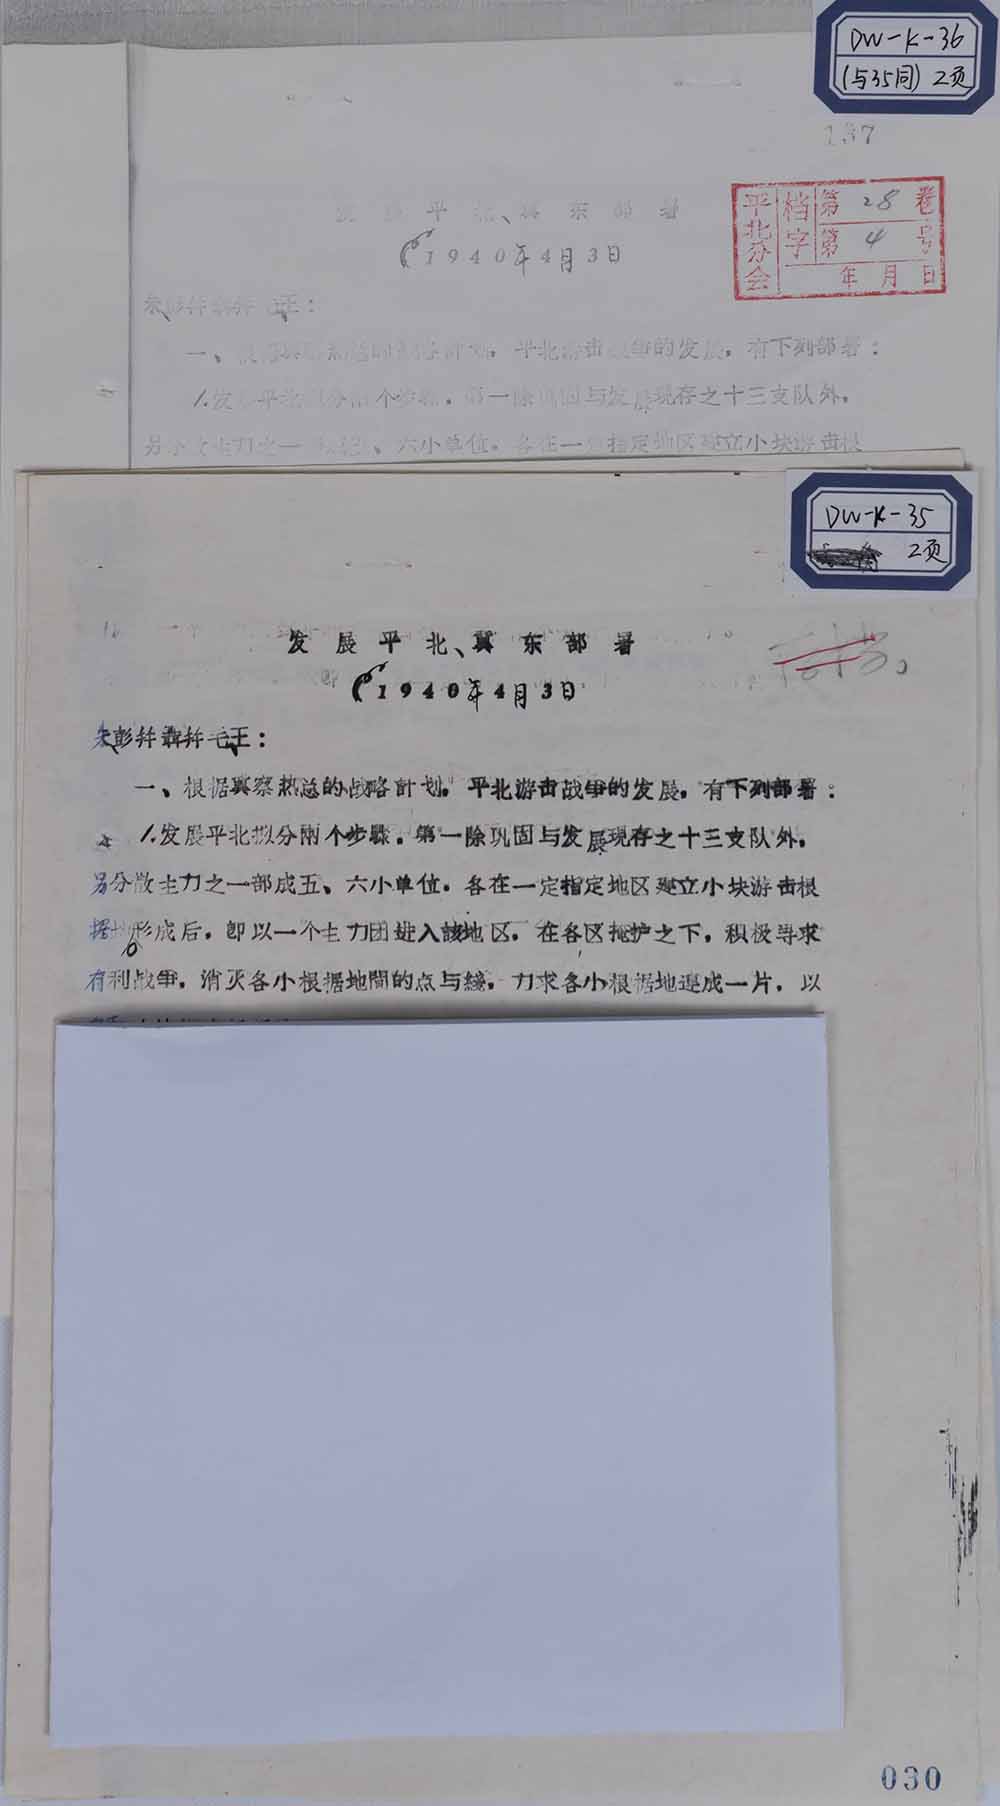 DW-K-36
(与35同) 2页
137
平北分会
档字
第28卷
第4号
年月日
发展平北、冀东部署
(1940年4月3日
朱彭并聂并毛王:
一、根据冀察热总的战略計划,平北游击战争的发展,有下列部署:
1.发展平北拟分兩个步驟,第一除巩固与发展现存之十三支队外,
另分散主力之一部成五、六小单位,各在一定指定地区建立小块游击根
DW-K-35
2页
发展平北、冀东部署
(1940年4月3日
朱彭并聂并毛王:
一、根据冀察热总的战略計划,平北游击战争的发展,有下列部署:
1.发展平北拟分兩个步驟,第一除巩固与发展现存之十三支队外,
另分散主力之一部成五、六小单位,各在一定指定地区建立小块游击根
据地形成后,卽以一个主力团进入該地区,在各区掩护之下,积极寻求
有利战争,消灭各小根据地間的点与綫,力求各小根据地連成一片,以
030